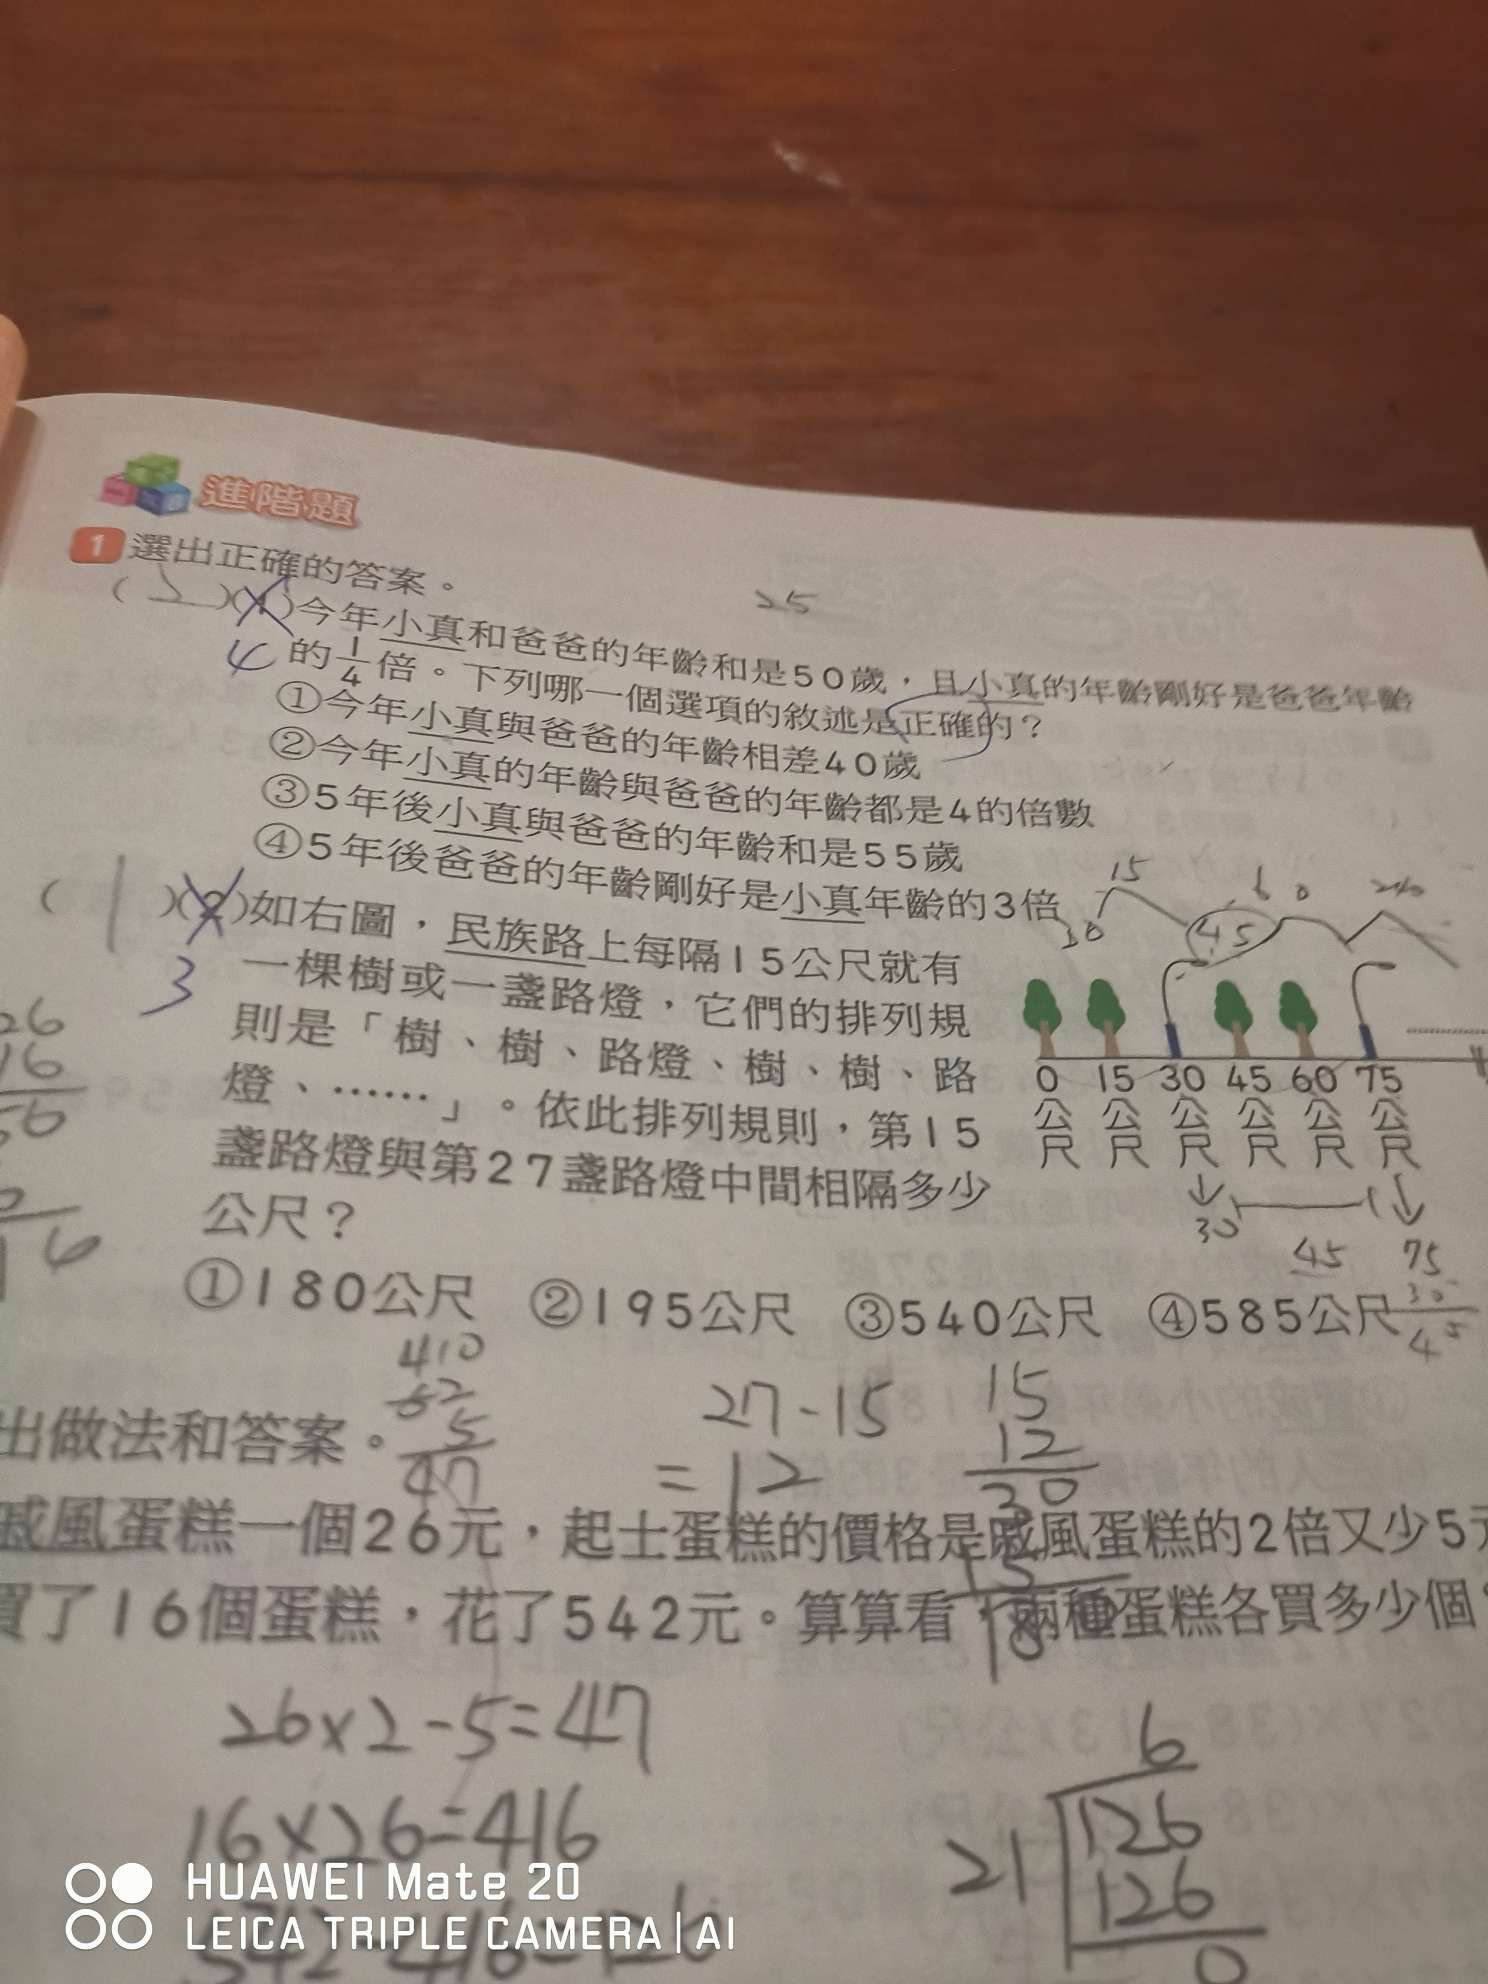 進階題
1 選出正確的答案。
25
(2)(1)今年小真和爸爸的年齡和是50歲，且小真的年齡剛好是爸爸年齡
4
的1/4倍。下列哪一個選項的敘述是正確的？
①今年小真與爸爸的年齡相差40歲
②今年小真的年齡與爸爸的年齡都是4的倍數
③5年後小真與爸爸的年齡和是55歲
④5年後爸爸的年齡剛好是小真年齡的3倍
15
60
30
45
(1)(2)如右圖，民族路上每隔15公尺就有
3
一棵樹或一盞路燈，它們的排列規
則是「樹、樹、路燈、樹、樹、路
燈、……」。依此排列規則，第15
盞路燈與第27盞路燈中間相隔多少
公尺？
0 15 30 45 60 75
公尺 公尺 公尺 公尺 公尺 公尺
30
45
75
30
45
26
16
56
16
①180公尺 ②195公尺 ③540公尺 ④585公尺
410
52
5
47
27-15
=12
15
12
30
15
180
出做法和答案。
戚風蛋糕一個26元，起士蛋糕的價格是戚風蛋糕的2倍又少5元
買了16個蛋糕，花了542元。算算看，兩種蛋糕各買多少個
26×2-5=47
16×26=416
542-416=126
6
21 126
126
0
HUAWEI Mate 20
LEICA TRIPLE CAMERA | AI